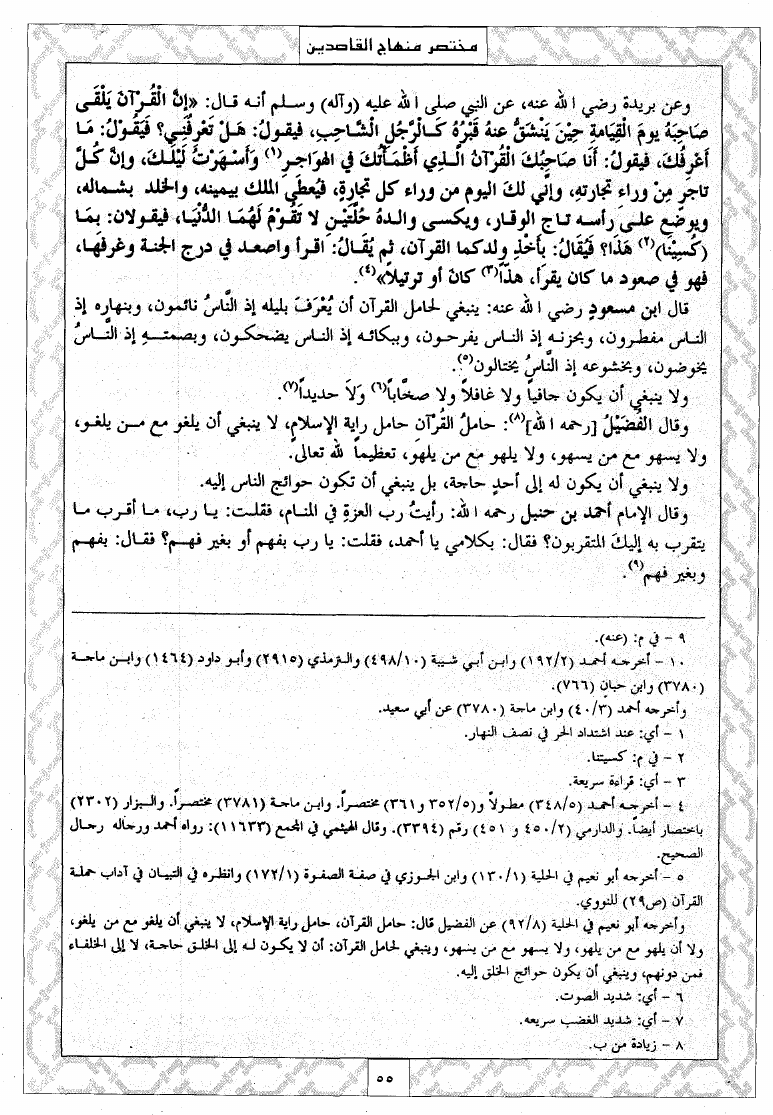 مختصر منهاج القاصدين
وعن بريدة رضي الله عنه، عن النبي صلى الله عليه (وآله) وسلم أنه قال: «إنَّ الْقُرْآنَ يَلْقَى
صَاحِبَهُ يومَ الْقِيَامةِ حِيْنَ يَنْشَقُّ عنهُ قَبْرُهُ كَالرَّجُلِ الْشَّاحِبِ، فيقولُ: هَلْ تَعرِفُنِي؟ فَيَقُوْلُ: مَا
أَعْرِفُكَ، فيقولُ: أَنَا صَاحِبُكَ الْقُرْآنُ الَّذِي أَظْمَأْتُكَ في الهَوَاجرِ(١) وَأَسْهَرْتُ لَيْلَكَ، وإنَّ كُلَّ
تاجرٍ مِنْ وراءِ تجارتهِ، وإني لكَ اليوم من وراء كل تجارةٍ، فيُعطَى الملك بيمينه، والخلد بشماله،
ويوضَع على رأسه تاج الوقار، ويكسى والدهُ حُلَّتَيْنِ لا تَقُوْمُ لَهُمَا الدُّنْيَا، فيقولان: بِمَا
(كُسِيْنَا)(٢) هَذَا؟ فَيُقَالُ: بأَخْذِ ولدكما القرآن، ثم يُقَالُ: اقرأ واصعد في درج الجنة وغرفها،
فهو في صعود ما كان يقرأ، هذّاً(٣) كانَ أو ترتيلاً»(٤).
قال ابن مسعودٍ رضي الله عنه: ينبغي لحامل القرآن أن يُعْرَفَ بليله إذ النَّاسُ نائمون، وبنهاره إذ
الناس مفطرون، وبحزنه إذ الناس يفرحون، وببكائه إذ الناس يضحكون، وبصمته إذ النَّاسُ
يخوضون، وبخشوعه إذ النَّاسُ يختالون(٥).
ولا ينبغي أن يكون جافياً ولا غافلاً ولا صخَّاباً(٦) وَلاَ حديداً(٧).
وقال الفُضَيْلُ [رحمه الله](٨): حاملُ القُرآن حامل راية الإسلامِ، لا ينبغي أن يلغو مع من يلغو،
ولا يسهو مع من يسهو، ولا يلهو مع من يلهو، تعظيماً لله تعالى.
ولا ينبغي أن يكون له إلى أحدٍ حاجة، بل ينبغي أن تكون حوائج الناس إليه.
وقال الإمام أحمد بن حنبل رحمه الله: رأيتُ رب العزةِ في المنام، فقلت: يا رب، ما أقرب ما
يتقرب به إليكَ المتقربون؟ فقال: بكلامي يا أحمد، فقلت: يا رب بفهم أو بغير فهم؟ فقال: بفهم
وبغير فهم(٩).
٩ - في م: (عنه).
١٠ - أخرجه أحمد (١٩٢/٢) وابن أبي شيبة (٤٩٨/١٠) والترمذي (٢٩١٥) وأبو داود (١٤٦٤) وابن ماجة
(٣٧٨٠) وابن حبان (٧٦٦).
وأخرجه أحمد (٤٠/٣) وابن ماجة (٣٧٨٠) عن أبي سعيد.
١ - أي: عند اشتداد الحر في نصف النهار.
٢ - في م: كسيتنا.
٣ - أي: قراءة سريعة.
٤ - أخرجه أحمد (٣٤٨/٥) مطولاً و(٣٥٢/٥ و٣٦١) مختصراً. وابن ماجة (٣٧٨١) مختصراً. والبزار (٢٣٠٢)
باختصار أيضاً. والدارمي (٤٥٠/٢ و ٤٥١) رقم (٣٣٩٤). وقال الهيثمي في المجمع (١١٦٣٣): رواه أحمد ورجاله رجال
الصحيح.
٥ - أخرجه أبو نعيم في الحلية (١٣٠/١) وابن الجوزي في صفة الصفوة (١٧٢/١) وانظره في التبيان في آداب حملة
القرآن (ص٢٩) للنووي.
وأخرجه أبو نعيم في الحلية (٩٢/٨) عن الفضيل قال: حامل القرآن، حامل راية الإسلام، لا ينبغي أن يلغو مع من يلغو،
ولا أن يلهو مع من يلهو، ولا يسهو مع من يسهو، وينبغي لحامل القرآن: أن لا يكون له إلى الخلق حاجة، لا إلى الخلفاء
فمن دونهم، وينبغي أن يكون حوائج الخلق إليه.
٦ - أي: شديد الصوت.
٧ - أي: شديد الغضب سريعه.
٨ - زيادة من ب.
٥٥